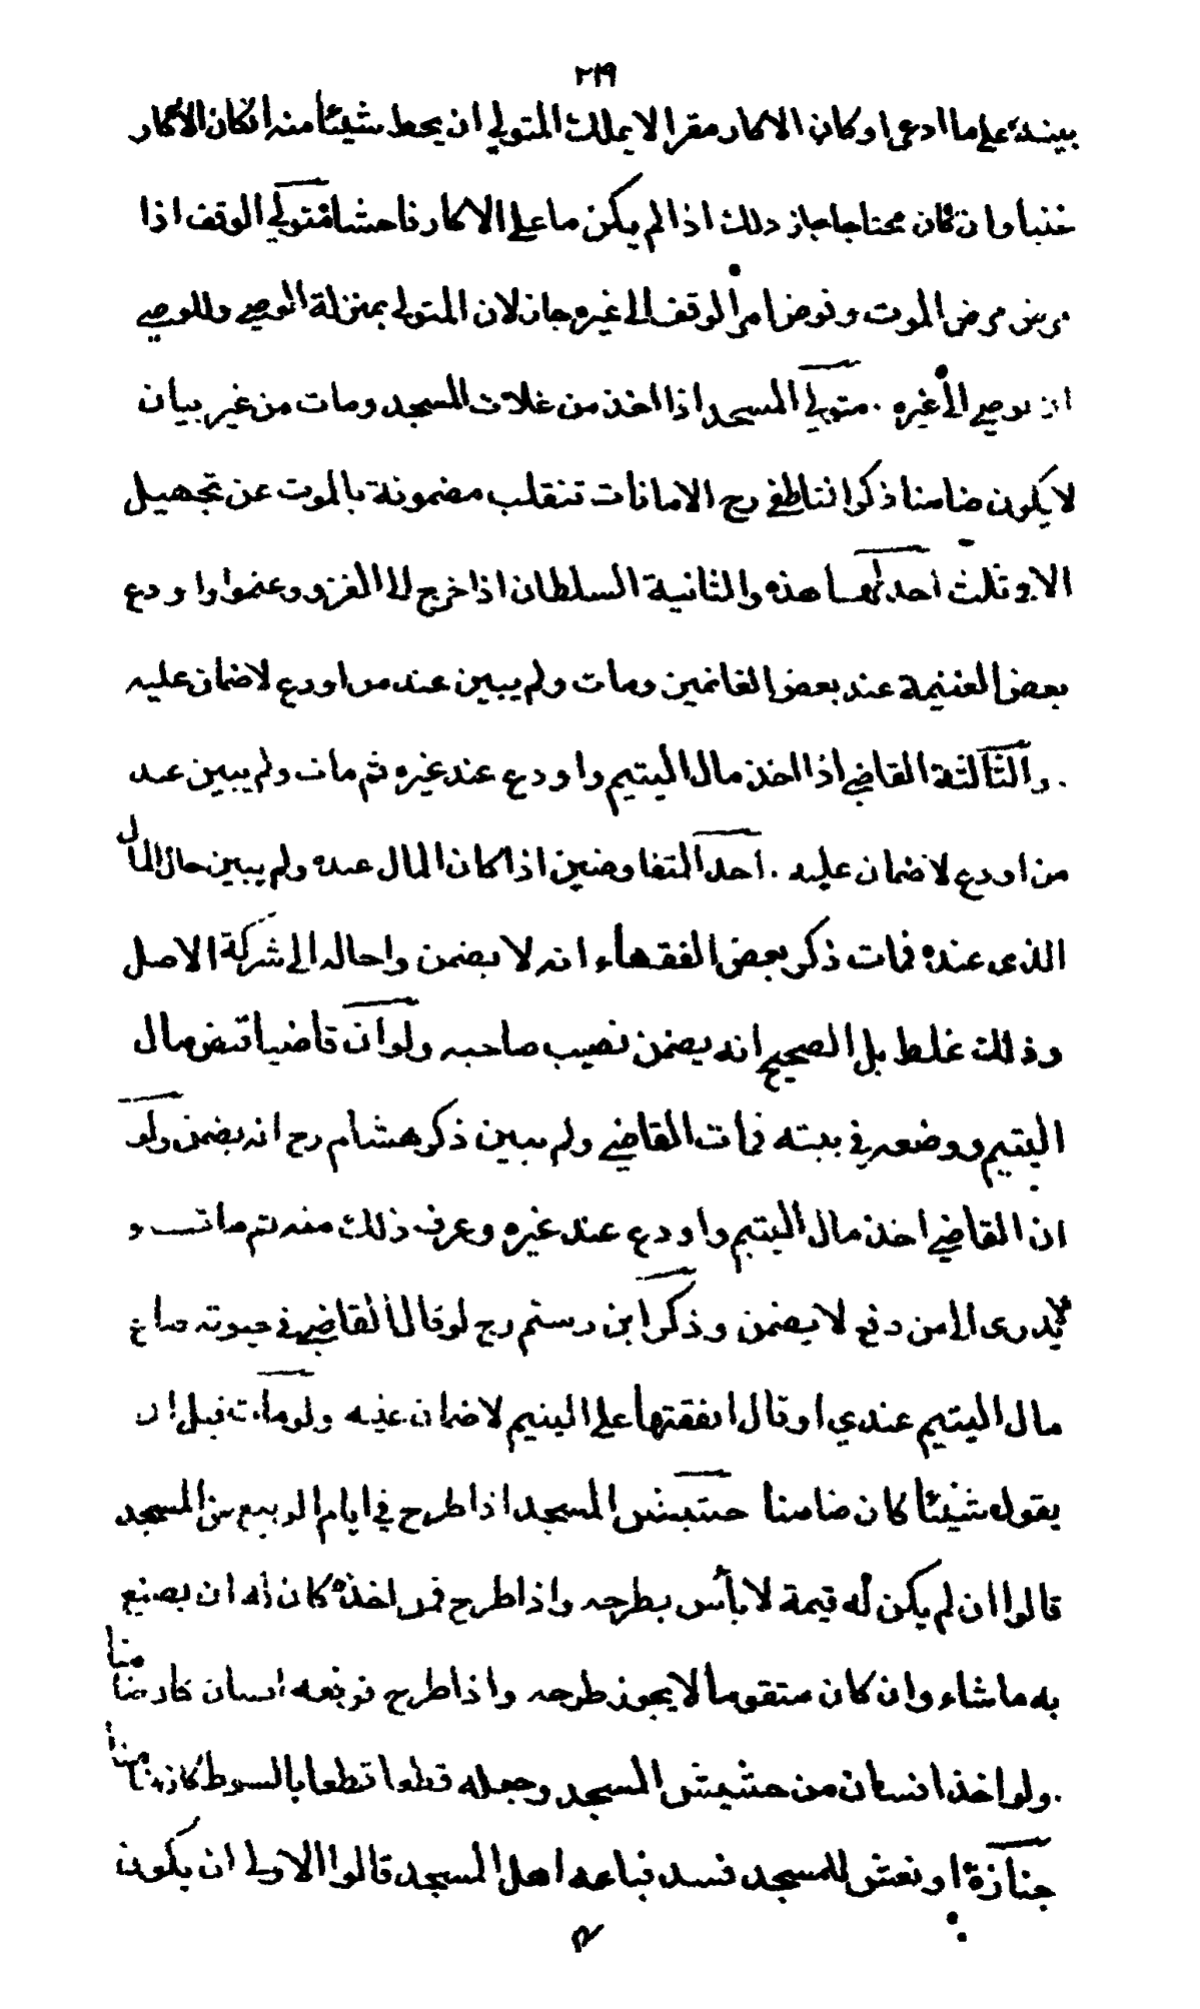 ٢١٩
بينة على ما ادعى او كان الاكار مقرا لا يملك المتولي ان يحط شيئا منه ان كان الاكار
غنيا وان كان محتاجا جاز ذلك اذا لم يكن ما على الاكار فاحشا متولي الوقف اذا
مرض مرض الموت وفوض امر الوقف الى غيره جاز لان المتولي بمنزلة الوصي وللوصي
ان يوصي الى غيره . متولي المسجد اذا اخذ من غلات المسجد ومات من غير بيان
لا يكون ضامنا ذكر الناطفي رح الامانات تنقلب مضمونة بالموت عن تجهيل
الا في ثلث احداها هذه والثانية السلطان اذا خرج الى الغزو وغنموا واودع
بعض الغنيمة عند بعض الغانمين ومات ولم يبين عند من اودع لا ضمان عليه
. والثالثة القاضي اذا اخذ مال اليتيم واودع عند غيره ثم مات ولم يبين عند
من اودع لا ضمان عليه . احد المتفاوضين اذا كان المال عنده ولم يبين حال المال
الذى عنده فمات ذكر بعض الفقهاء انه لا يضمن واحاله الى شركة الاصل
وذلك غلط بل الصحيح انه يضمن نصيب صاحبه ولو ان قاضيا قبض مال
اليتيم ووضعه في بيته فمات القاضي ولم يبين ذكر هشام رح انه يضمن ولو
ان القاضي اخذ مال اليتيم واودع عند غيره وعرف ذلك منه ثم مات و
لا يدرى الى من دفع لا يضمن وذكر ابن رستم رح لو قال القاضي في حيوته ضاع
مال اليتيم عندي او قال انفقتها على اليتيم لا ضمان عليه ولو مات قبل ان
يقول شيئا كان ضامنا حشيش المسجد اذا طرح في ايام الربيع من المسجد
قالوا ان لم يكن له قيمة لا بأس بطرحه واذا طرح فمن اخذه كان له ان يصنع
به ما شاء وان كان متقوما لا يجوز طرحه واذا طرح فرفعه انسان كان ضامنا
. ولو اخذ انسان من حشيش المسجد وجعله قطعا قطعا بالسوط كان ضامنا
جنازة او نعش للمسجد فسد فباعه اهل المسجد قالوا الاولى ان يكون